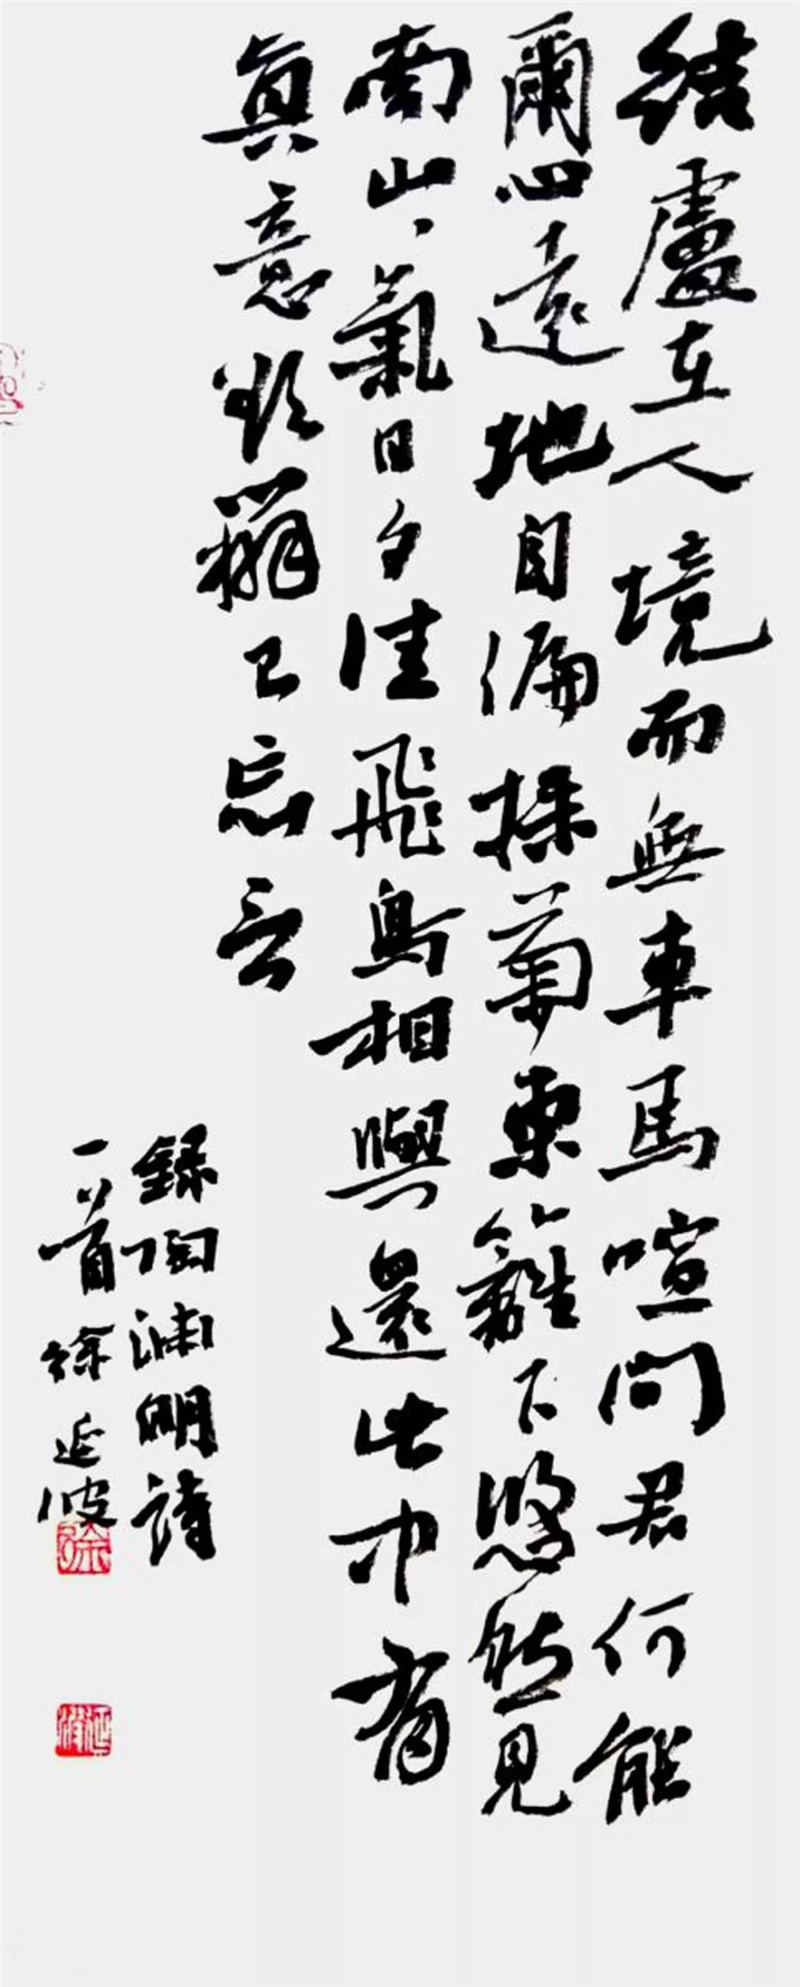 結廬在人境而無車馬喧問君何能
爾心遠地自偏採菊東籬下悠然見
南山山氣日夕佳飛鳥相與還此中有
真意欲辯已忘言
錄陶淵明詩
一首徐延波
徐
延波